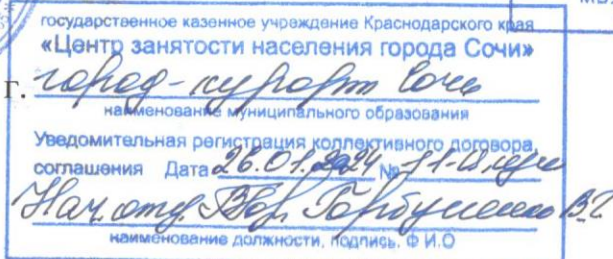 государственное казенное учреждение Краснодарского края
«Центр занятости населения города Сочи»
г. город-курорт Сочи
наименование муниципального образования
Уведомительная регистрация коллективного договора
соглашения Дата 26.01.2024 № 11-
Нач. отд. Горбушенко В.Г.
наименование должности, подпись, Ф И.О